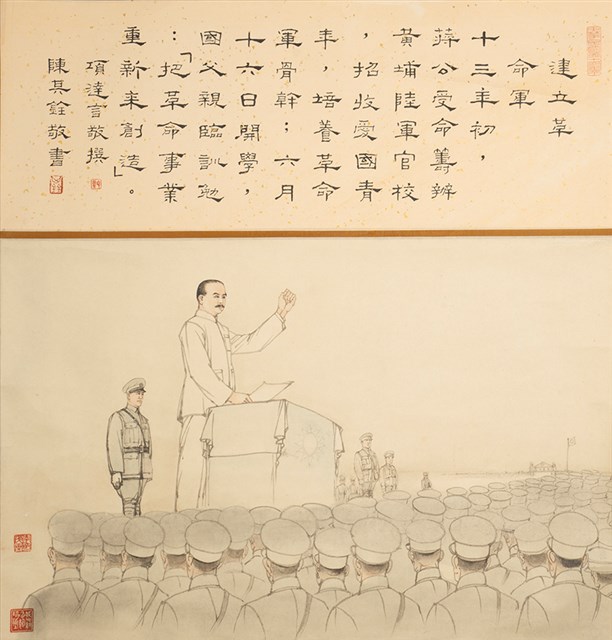 建立革
命軍
十三年初，
蔣公受命籌辦
黃埔陸軍官校
，招收愛國青
年，培養革命
軍骨幹；六月
十六日開學，
國父親臨訓勉
：「把革命事業
重新來創造」。
項達言敬撰
陳其銓敬書